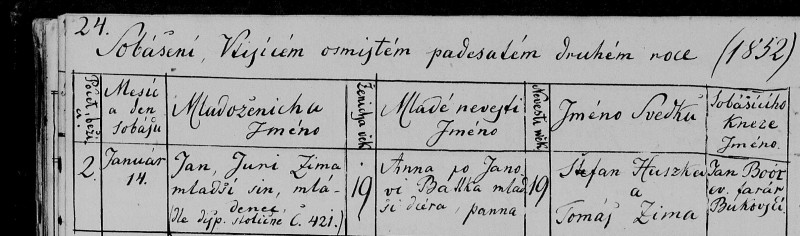 24.
Sobášení, V tisícém osmistém padesatém druhém roce (1852)
Počet běži.
Mesíc
a den
Sobášu
Mladoženichu
Jméno
Ženicha věk
Mladé nevesti
Jméno
Nevesti věk
Jméno Svedku
Sobášícího
Kneze
Jméno.
2.
Január
14.
Jan, Juri Zima
mladší sin, mlá-
denec
(dle disp. stoličné č. 421.)
19
Anna po Jano
vi Baška mlad
ší dcéra, panna
19
Štefan Huszka
a
Tomáš Zima
Jan Boór
ev. farár
Bukovský